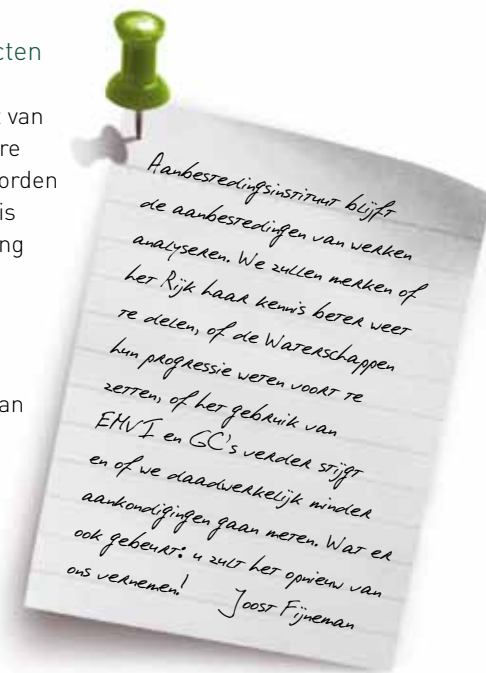 cten
t van
re
orden
is
ng
an
Aanbestedingsinstituut blijft
de aanbestedingen van werken
analyseren. We zullen merken of
het Rijk haar kennis beter weet
te delen, of de Waterschappen
hun progressie weten voort te
zetten, of het gebruik van
EMVI en GC's verder stijgt
en of we daadwerkelijk minder
aankondigingen gaan meten. Wat er
ook gebeurt: u zult het opnieuw van
ons vernemen! Joost Fijneman